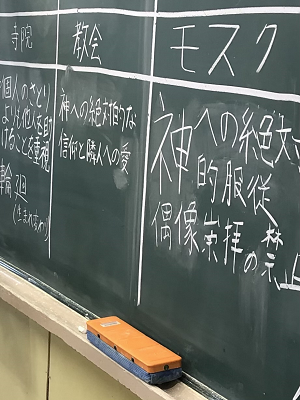 寺院
個人のさとり
よりも他人を助
けることを重視
輪廻
(生まれ変わり)
教会
神への絶対的な
信仰と隣人への愛
モスク
神への絶対
的服従
偶像崇拝の禁止